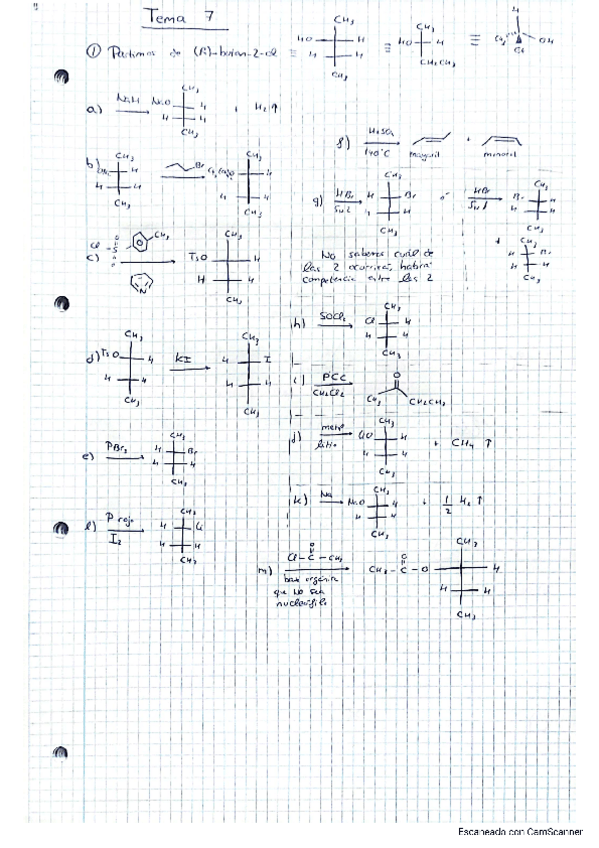 Tema 7
① Partimos de (R)-butan-2-ol ≡ CH₃ HO H H H CH₃ ≡ CH₃ HO H CH₂CH₃ ≡ H CH₃ OH
a) NaH NaO CH₃ H H H CH₃ + H₂↑
b) CH₃ H H H CH₃ Br CH₃ H H H CH₃
c) Cl S O O CH₃ N TsO CH₃ H H H CH₃
d) TsO CH₃ H H H CH₃ KI CH₃ H I H H CH₃
e) PBr₃ CH₃ H Br H H CH₃
P rojo
I₂ CH₃ H H H CH₃
f) H₂SO₄
140°C
mayorit + minorit
g) HBr
SN2 CH₃ H Br H H CH₃ ó HBr
SN1 CH₃ Br H H H CH₃
+ CH₃ H Br H H CH₃
No sabemos cuál de
las 2 ocurrirá, habrá
competencia entre las 2
h) SOCl₂ CH₃ Cl H H H CH₃
i) PCC
CH₂Cl₂ O CH₃ CH₂CH₃
j) metil
litio CH₃ H H H CH₃ + CH₄ ↑
k) Na NaO CH₃ H H H CH₃ + 1/2 H₂ ↑
m) Cl - C - CH₃ O
base orgánica
que no sea
nucleófila
CH₃ - C - O O CH₃ H H H CH₃
Escaneado con CamScanner